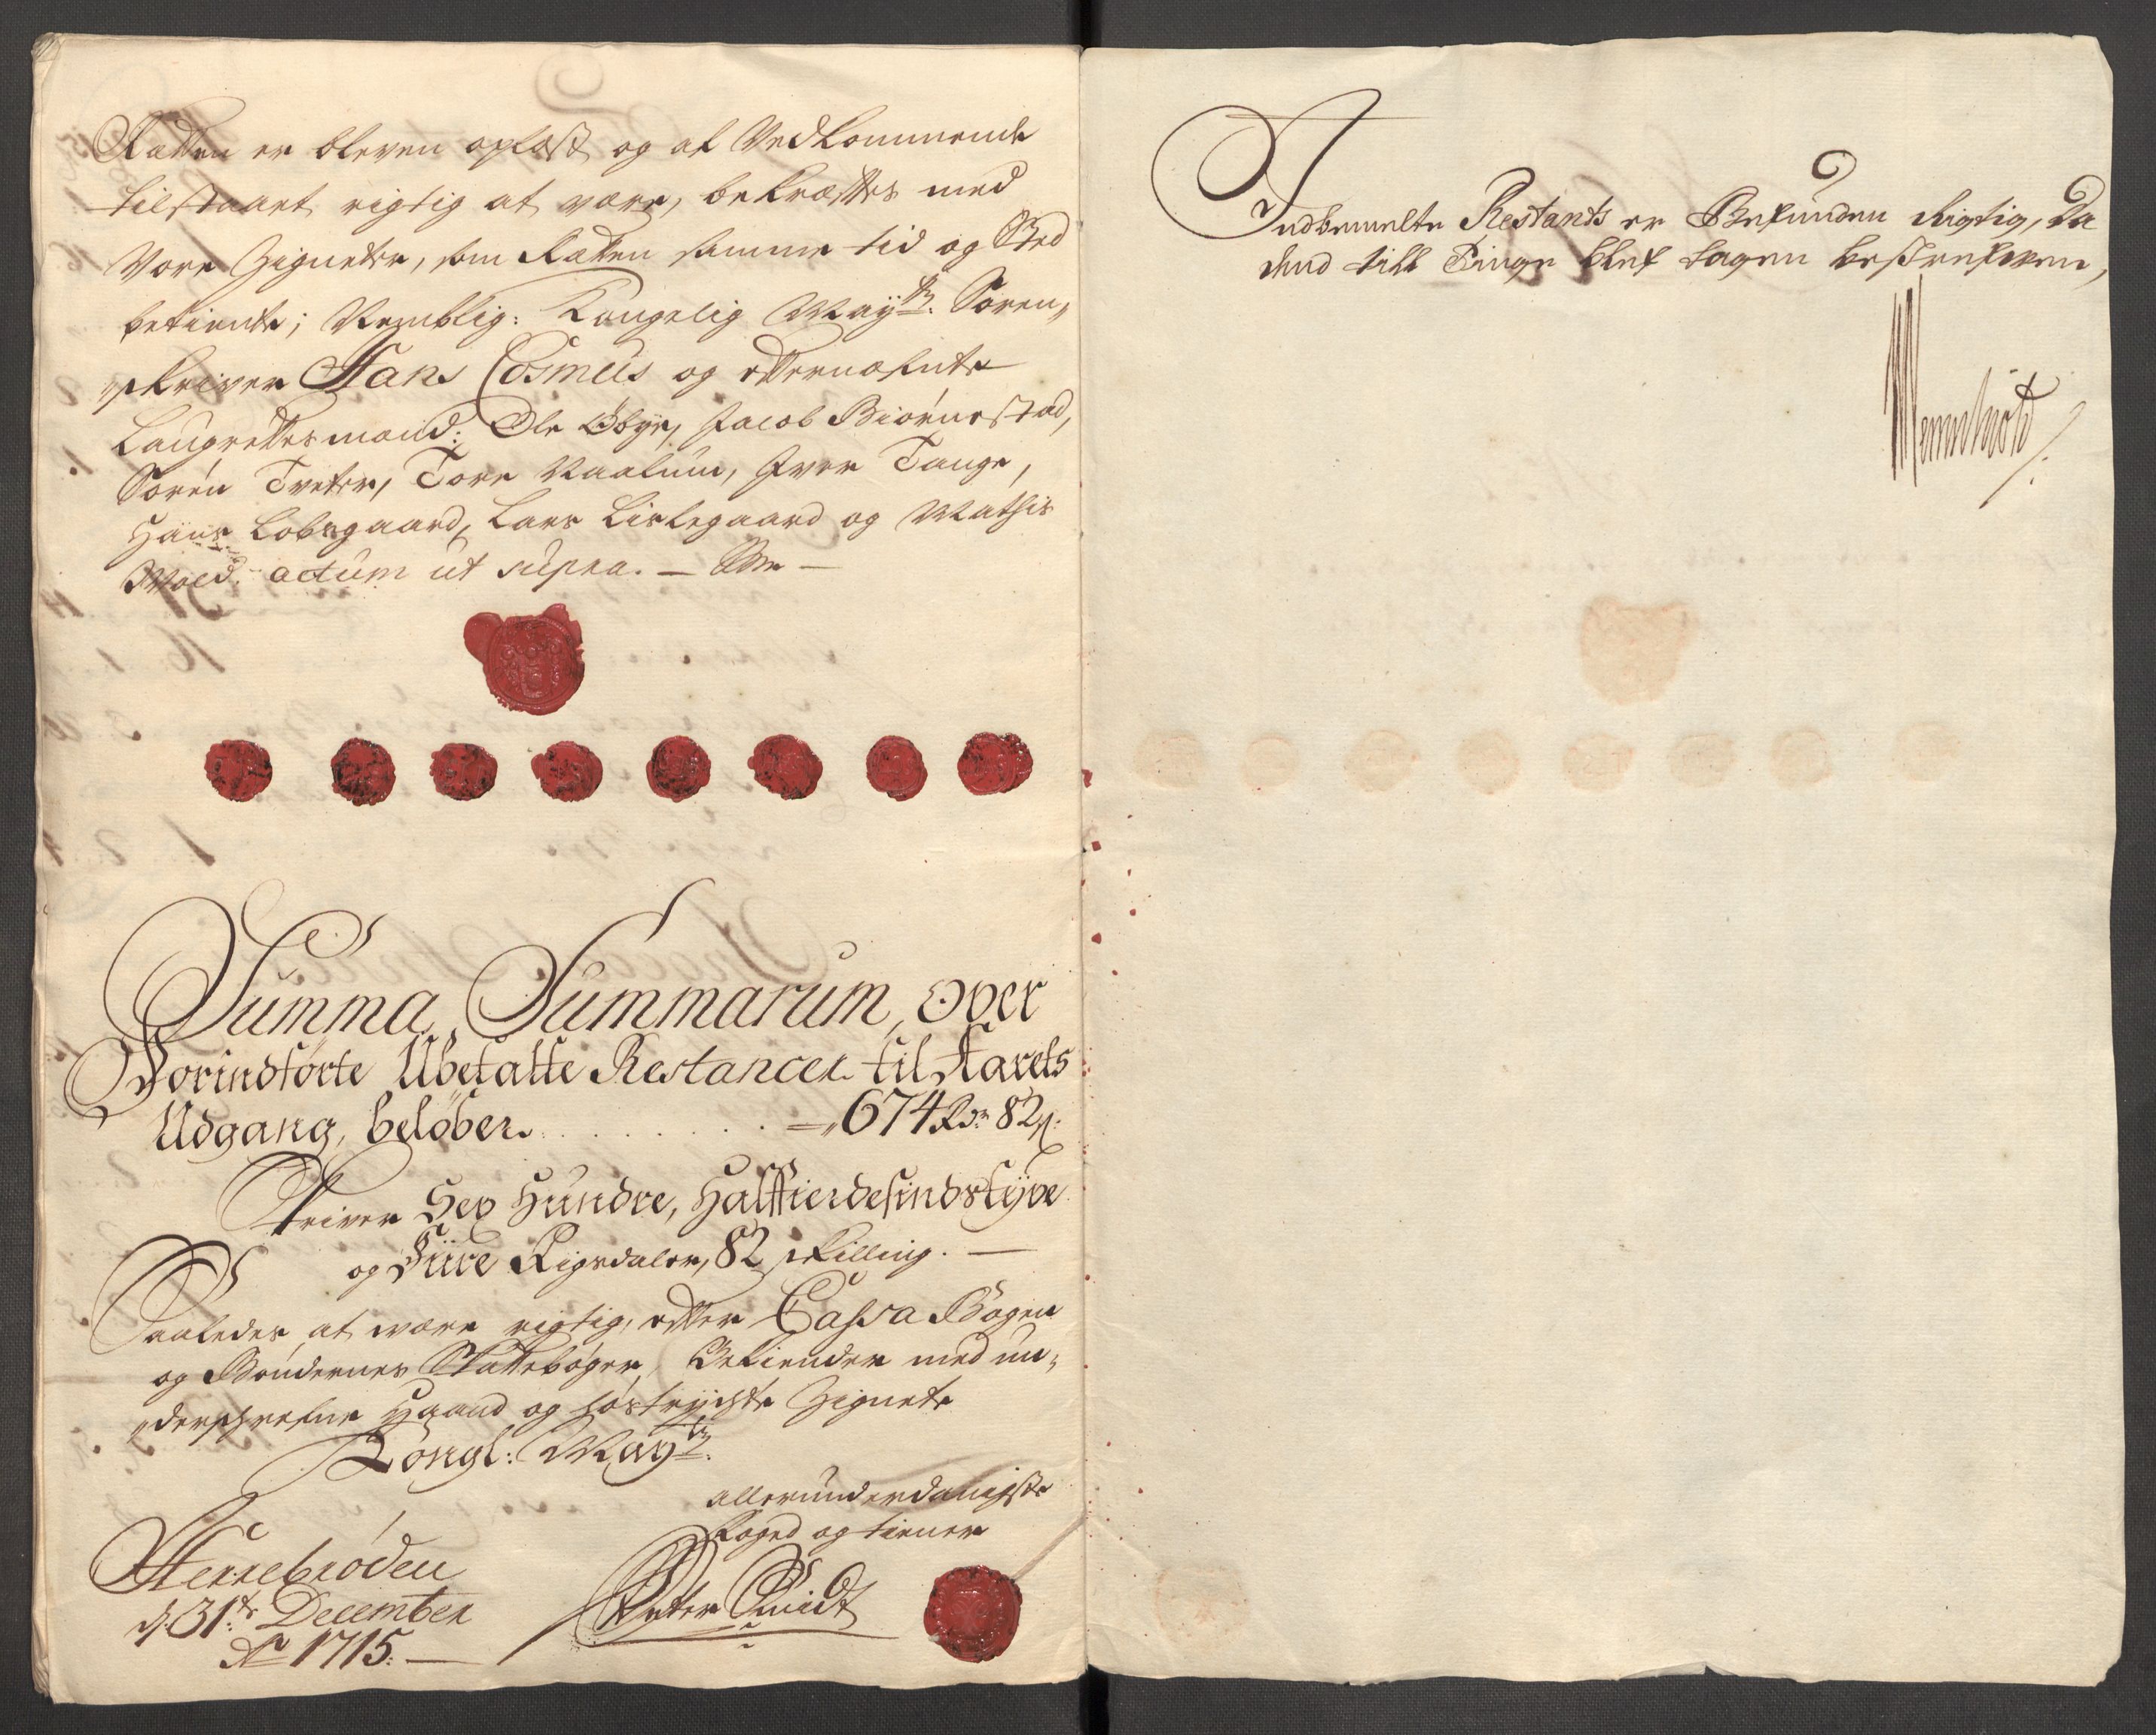 Retten er bleven oplæst og af Vedkommende
tilstaaet rigtig at være, bekræftes med
Vore Zigneter, som Retten samme tid og Sted
betiente; Nemblig: Kongelig Mayts. Soren„
„skriver Hans Cosmus og effternæfnte
Laugrettesmænd: Ole Obye, Jacob Biørnestad,
Sørén Tveter, Tore Naalum, Iver Tange,
Hans Lobsgaard, Lars Lislegaard og Mathis
Moed. actum ut supra. —
Summa Summarum, over
Forindførte Ubetalte Restancer til Aarets
Udgang, beløber. . . . . . . . =„ 674 Rdr 82 s:
Skriver Sex Hundre, Halffierdesindstyve
og Fiire Rigsdaler, 82 skilling. —
Saaledes at være rigtig, effter Cassa Bogen
og Bøndernes Skattebøger, Bekiender med un„
„derschrefne Haand og hostrÿchte Zignete
Kongl: Mayts.
allerunderdanigste
Foged og tiener
Herrebröden
d. 31te December
Ao 1715. —
Peter Smidt
Indbemelte Restants er Befunden Rigtig, da
dend till Tinge blef tagen beskrefven,